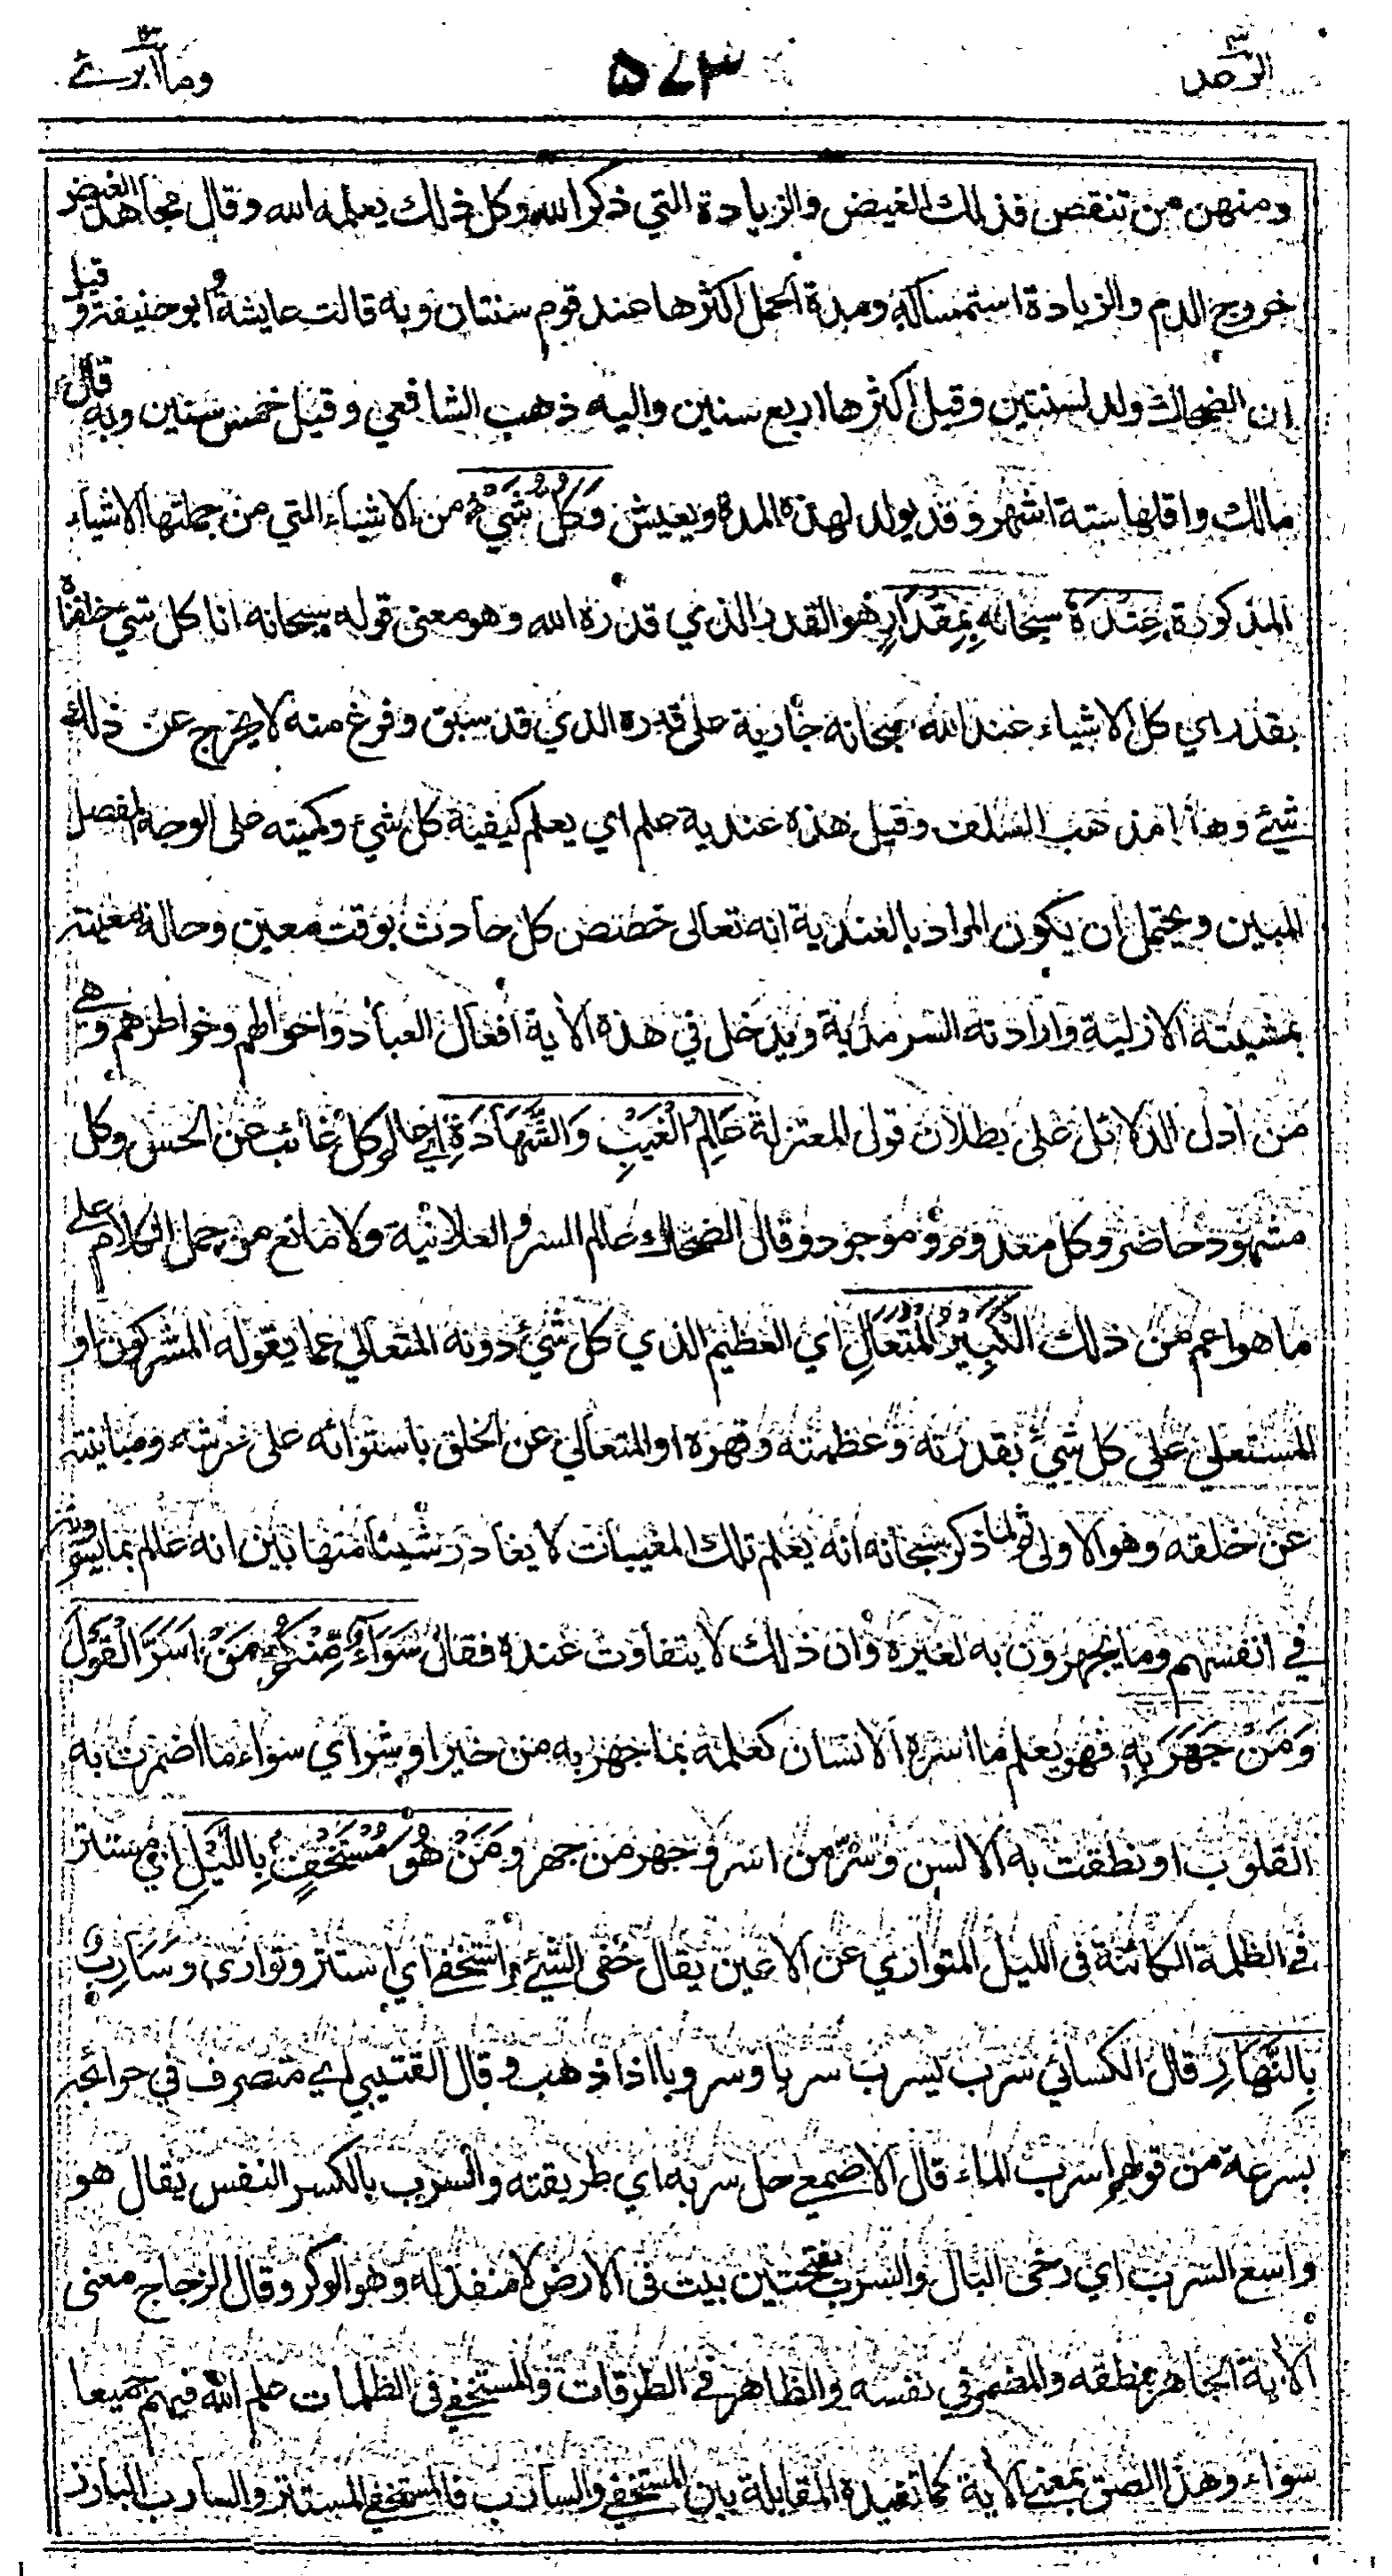 الرعد ٥٧٣ وما أبرئ
ومنهن من تنقص فذلك الغيض والزيادة التي ذكر الله وكل ذلك يعلمه الله وقال مجاهد الغيض
خروج الدم والزيادة استمساكه ومدة الحمل اكثرها عند قوم سنتان وبه قالت عايشة وابو حنيفة وقيل
ان الضحاك ولد لسنتين وقيل اكثرها اربع سنين واليه ذهب الشافعي وقيل خمس سنين وبه قال
مالك واقلها ستة اشهر وقد يولد لهذه المدة ويعيش وَكُلُّ شَيْءٍ من الاشياء التي من جملتها الاشياء
المذكورة عِنْدَهُ سبحانه بِمِقْدَارٍ هو القدر الذي قدره الله وهو معنى قوله سبحانه انا كل شيء خلقناه
بقدر اي كل الاشياء عند الله سبحانه جارية على قدره الذي قد سبق وفرغ منه لا يخرج عن ذلك
شيئ وهذا مذهب السلف وقيل هذه عندية علم اي يعلم كيفية كل شيء وكميته على الوجه المفصل
المبين ويحتمل ان يكون المراد بالعندية انه تعالى خصص كل حادث بوقت معين وحالة معينة
بمشيته الازلية وارادته السرمدية ويدخل في هذه الاية افعال العباد واحوالهم وخواطرهم وهي
من ادل الدلائل على بطلان قول المعتزلة عَالِمُ الْغَيْبِ وَالشَّهَادَةِ اي عالم كل غائب عن الحس وكل
مشهود حاضر وكل معدوم وموجود وقال الضحاك عالم السر والعلانية ولا مانع من حمل الكلام على
ما هو اعم من ذلك الْكَبِيرُ الْمُتَعَالِ اي العظيم الذي كل شيء دونه المتعالي عما يقوله المشركون او
المستعلي على كل شيء بقدرته وعظمته وقهره او المتعالي عن الخلق باستوائه على عرشه ومباينته
عن خلقه وهو الاولى ثم لما ذكر سبحانه انه يعلم تلك المغيبات لا يغادر شيئا منها بين انه عالم بما يسرونه
في انفسهم وما يجهرون به لغيره وان ذلك لا يتفاوت عنده فقال سَوَاءٌ مِّنْكُمْ مَنْ اَسَرَّ الْقَوْلَ
وَمَنْ جَهَرَ بِهٖ فهو يعلم ما اسره الانسان كعلمه بما جهر به من خير او شر اي سواء ما اضمرت به
القلوب او نطقت به الالسن وسر من اسر وجهر من جهر وَمَنْ هُوَ مُسْتَخْفٍ بِاللَّيْلِ اي مستتر
في الظلمة الكائنة في الليل المتواري عن الاعين يقال خفى الشيئ واستخفى اي استتر وتوارى وَسَارِبٌ
بِالنَّهَارِ قال الكسائي سرب يسرب سربا وسروبا اذا ذهب وقال القتيبي اي متصرف في حوائجه
بسرعة من قولهم اسرب الماء قال الاصمعي حل سربه اي طريقته والسرب بالكسر النفس يقال هو
واسع السرب اي رخى البال والسرب بفتحتين بيت في الارض لا منفذ له وهو الوكر وقال الزجاج معنى
الاية الجاهر بمنطقه والمضمر في نفسه والظاهر في الطرقات والمستخفي في الظلمات علم الله فيهم جميعا
سواء وهذا الصق بمعنى الاية كما تفيده المقابلة بين المستخفي والسارب فالمستخفي المستتر والسارب البارز